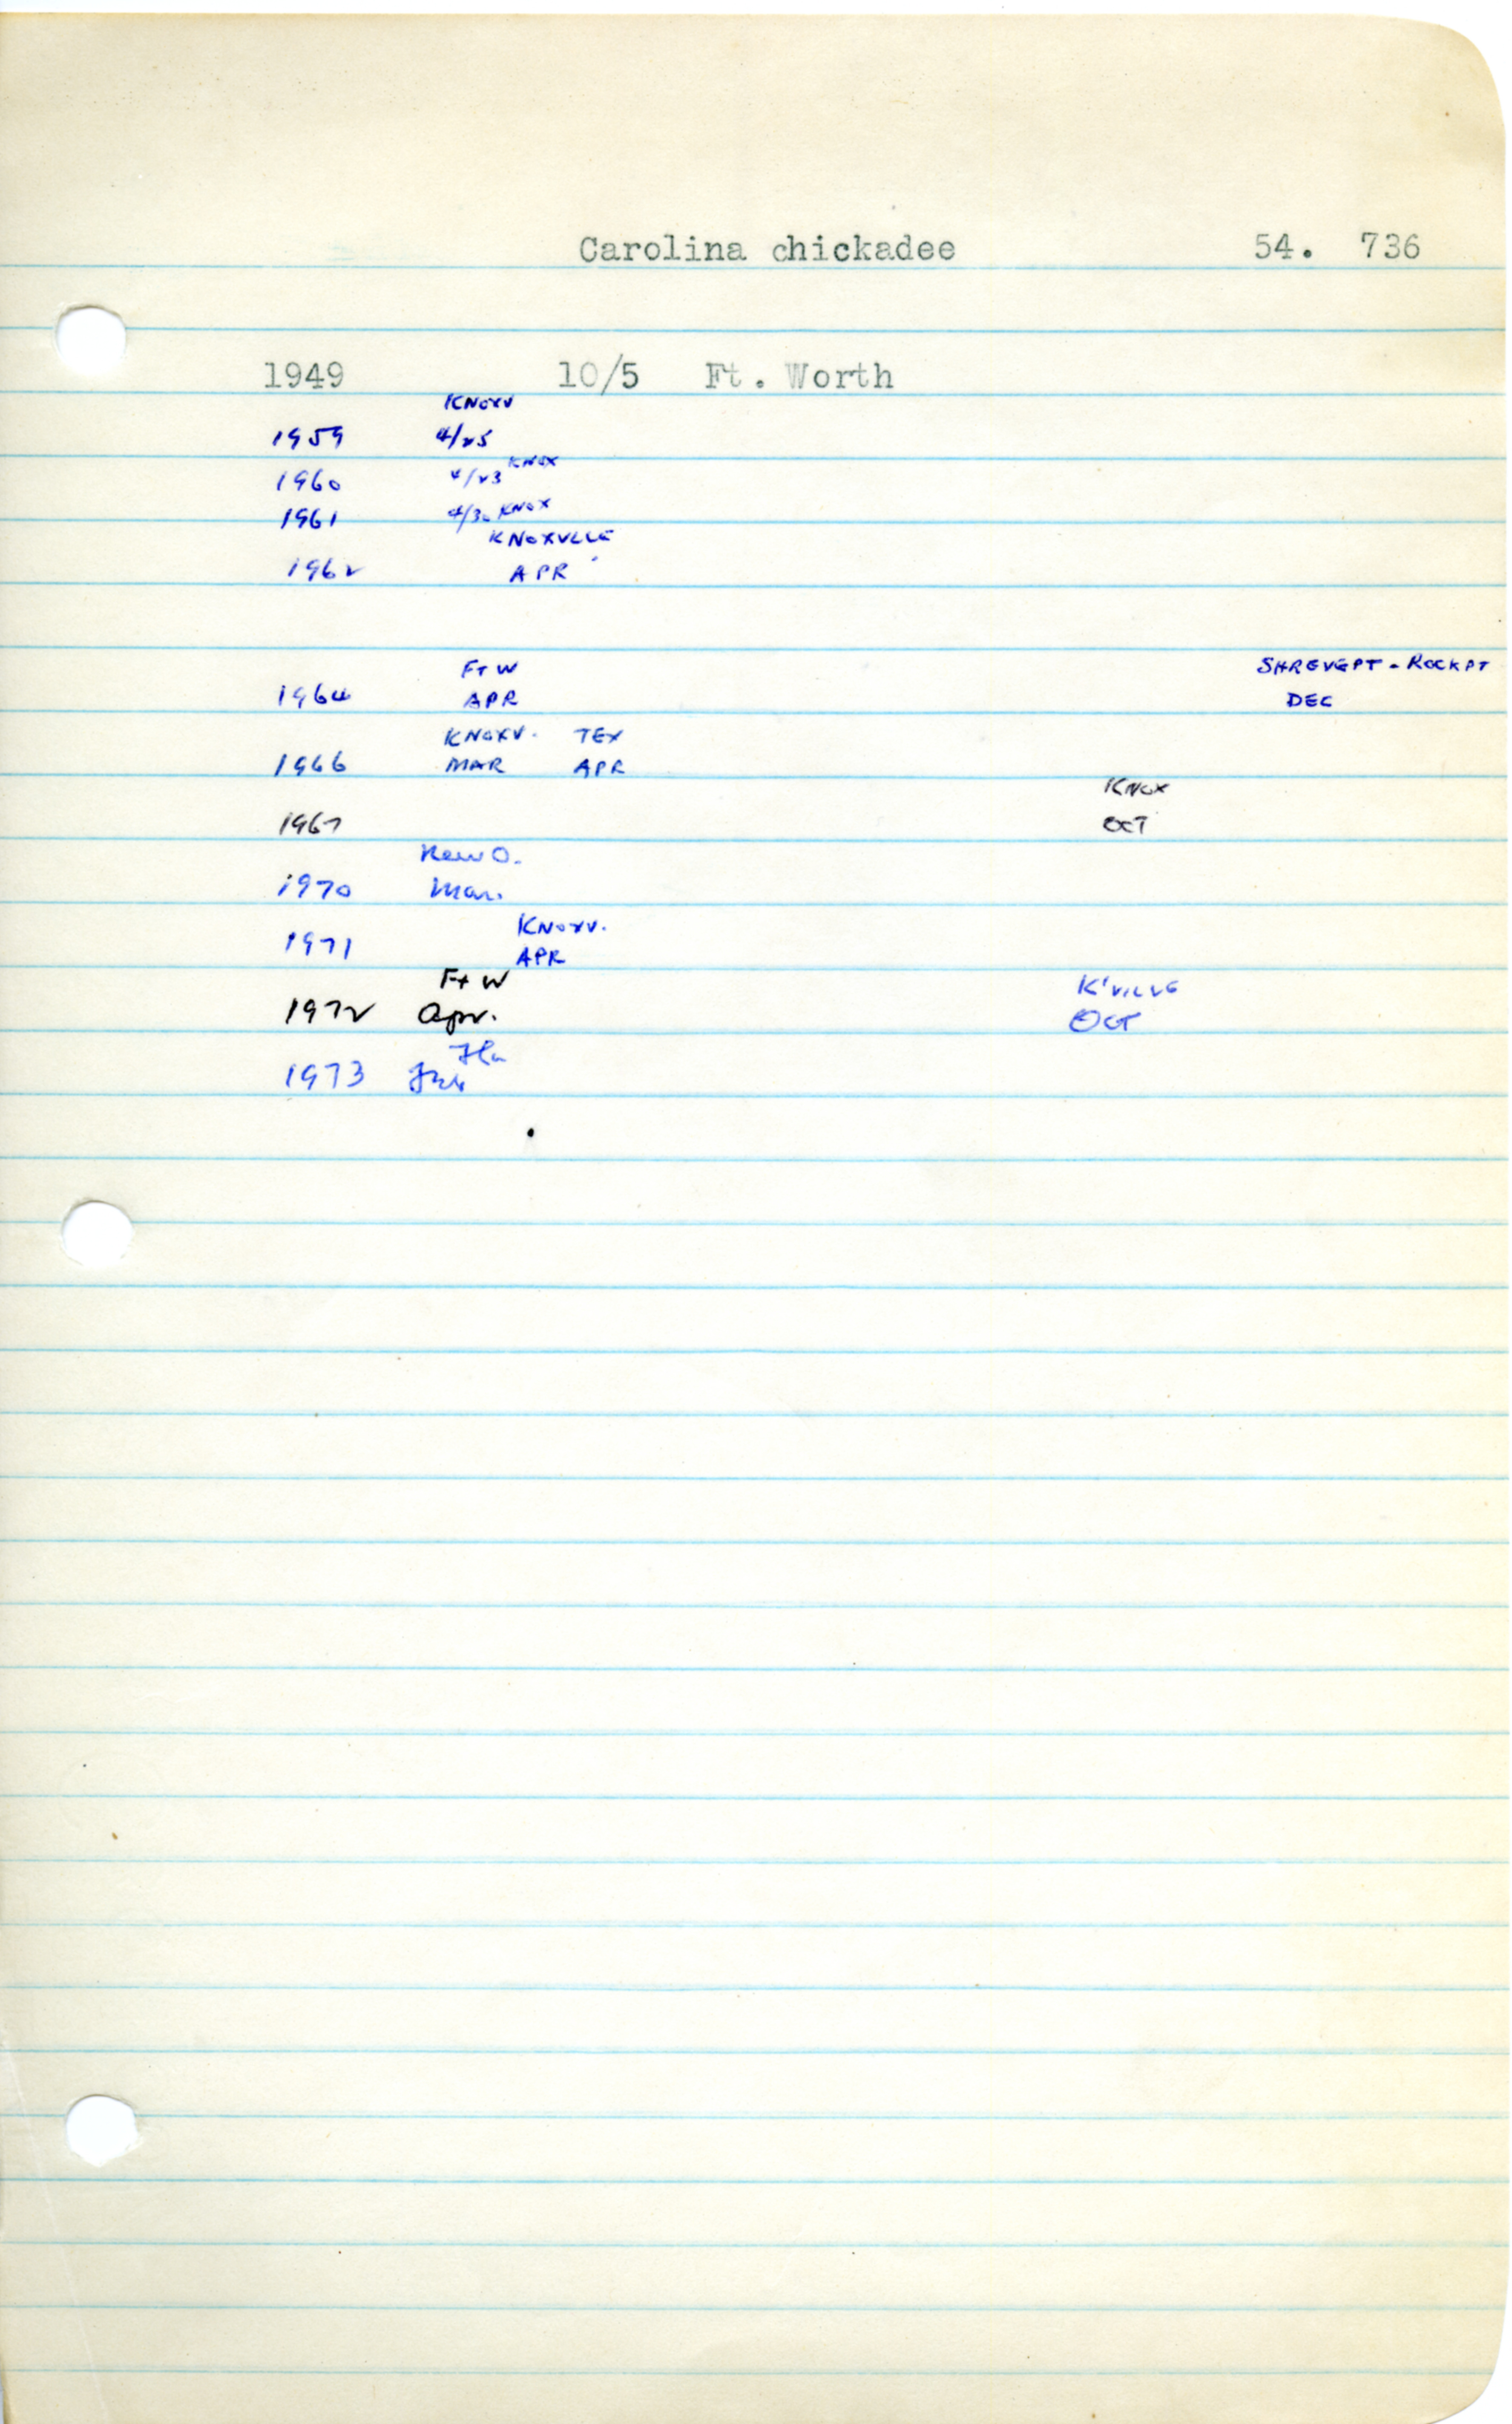 Carolina chickadee 54. 736
1949 10/5 Ft. Worth
KNOXV
1959 4/25
1960 4/23 KNOX
1961 4/30 KNOX
KNOXVLLE
1962 APR
FT W SHREVEPT - ROCKPT
1964 APR DEC
KNOXV. TEX
1966 MAR APR
KNOX
1967 OCT
New O.
1970 Mar.
KNOXV.
1971 APR
Ft W K'VILLE
1972 Apr. OCT
Fla
1973